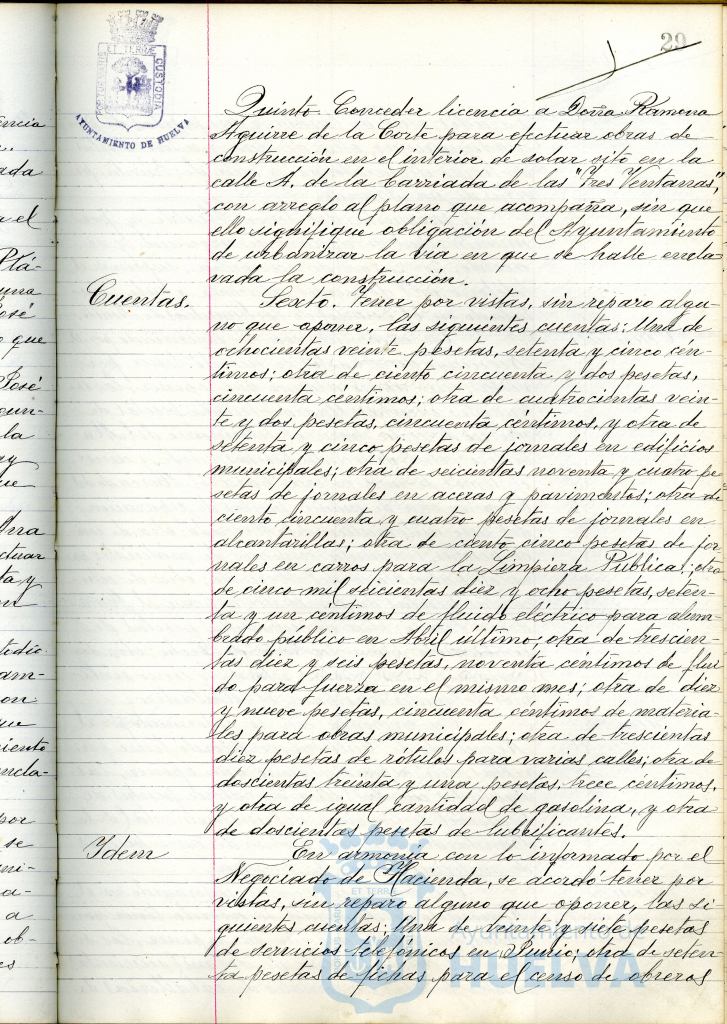 29
PORTUS MARIS
ET TERRÆ
CUSTODIA
AYUNTAMIENTO DE HUELVA
Quinto. Conceder licencia a Doña Ramona
Aguirre de la Corte para efectuar obras de
construcción en el interior de solar sito en la
calle A. de la barriada de las "Tres Ventanas,"
con arreglo al plano que acompaña, sin que
ello signifique obligación del Ayuntamiento
de urbanizar la vía en que se halle encla-
vada la construcción.
Cuentas. Sexto. Tener por vistas, sin reparo algu-
no que oponer, las siguientes cuentas: Una de
ochocientas veinte pesetas, setenta y cinco cén-
timos; otra de ciento cincuenta y dos pesetas,
cincuenta céntimos; otra de cuatrocientas vein-
te y dos pesetas, cincuenta céntimos, y otra de
setenta y cinco pesetas de jornales en edificios
municipales; otra de seicientas noventa y cuatro pe
setas de jornales en aceras y pavimentos; otra de
ciento cincuenta y cuatro pesetas de jornales en
alcantarillas; otra de ciento cinco pesetas de jor
nales en carros para la Limpieza Pública; otra
de cinco mil seicientas diez y ocho pesetas, seten-
ta y un céntimos de fluido eléctrico para alum-
brado público en Abril último; otra de trescien-
tas diez y seis pesetas, noventa céntimos de flui
do para fuerza en el mismo mes; otra de diez
y nueve pesetas, cincuenta céntimos de materia-
les para obras municipales; otra de trescientas
diez pesetas de rótulos para varias calles; otra de
doscientas treinta y una pesetas, trece céntimos,
y otra de igual cantidad de gasolina, y otra
de doscientas pesetas de lubrificantes.
Idem En armonía con lo informado por el
Negociado de Hacienda, se acordó tener por
vistas, sin reparo alguno que oponer, las si
guientes cuentas: Una de veinte y siete pesetas
de servicios telefónicos en Junio; otra de seten-
ta pesetas de fichas para el censo de obreros
Ayuntamiento de
HUELVA